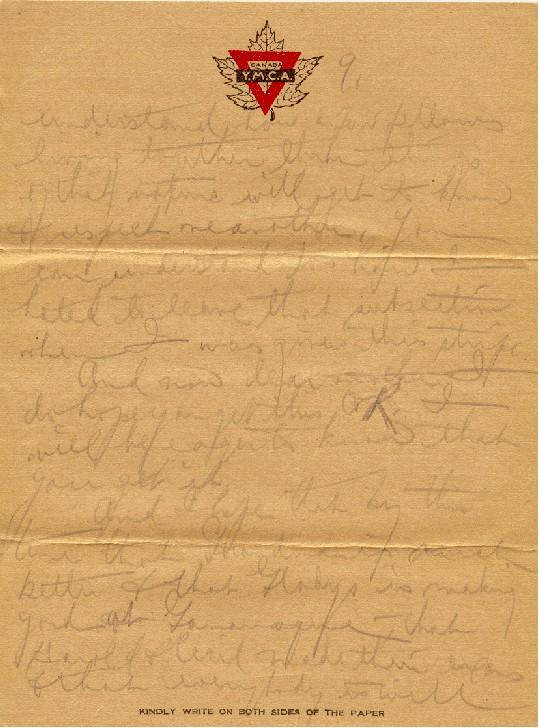 CANADA
Y.M.C.A.
9.
understand how a few fellows
living together through things
of that nature will get to know
& respect one another. You
can understand too how I
hated to leave that subsection
when I was given this stripe.
And now dear mother I
do hope you get this OK. I
will be eager to know that
you get it.
And I hope that by this
time that is much
better & that Gladys is making
good at Gananoque – that
Harold & Cecil made their exams
& that everybody is well
KINDLY WRITE ON BOTH SIDES OF THE PAPER